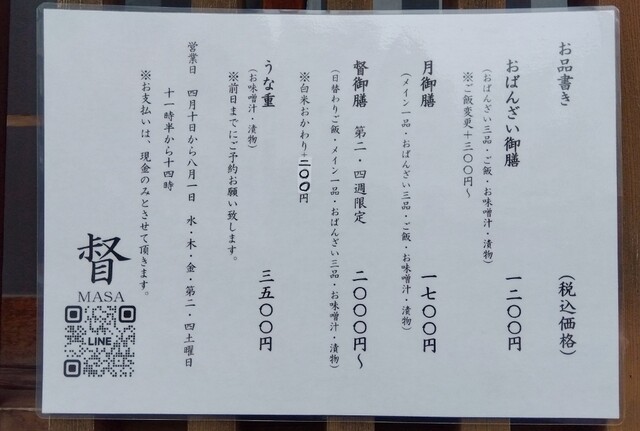 お品書き （税込価格）
おばんざい御膳 一二〇〇円
（おばんざい三品・ご飯・お味噌汁・漬物）
※ご飯変更＋三〇〇円〜
月御膳 一七〇〇円
（メイン一品・おばんざい三品・ご飯・お味噌汁・漬物）
督御膳 第二・四週限定 二〇〇〇円〜
（日替わりご飯・メイン一品・おばんざい三品・お味噌汁・漬物）
※白米おかわり二〇〇円
うな重 三五〇〇円
（お味噌汁・漬物）
※前日までにご予約お願い致します。
営業日 四月十日から八月一日 水・木・金・第二・四土曜日
十一時半から十四時
※お支払いは、現金のみとさせて頂きます。
督
MASA
LINE